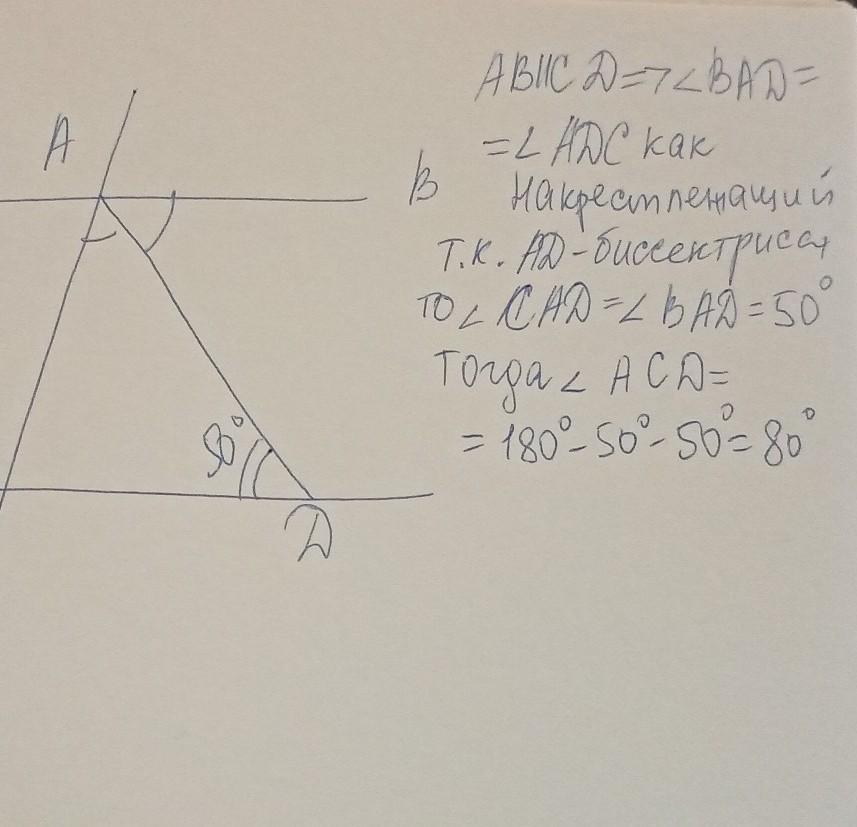 A
B
50°
D
AB||CD=>∠BAD=
=∠ADC как
накрестлежащий
т.к. AD-биссектриса,
то ∠CAD=∠BAD=50°
Тогда ∠ACD=
=180°-50°-50°=80°